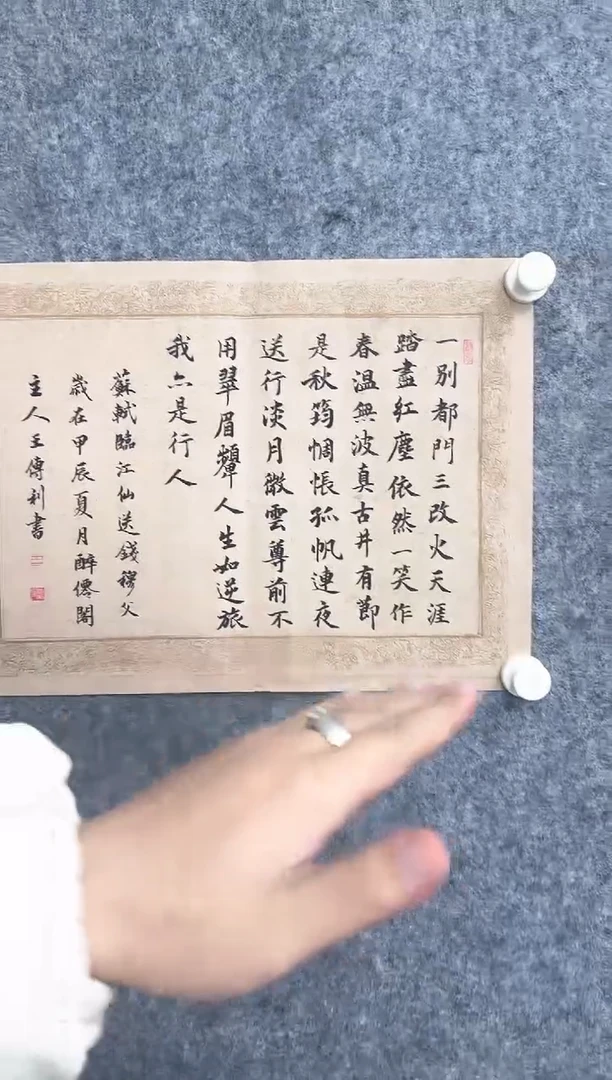 一別都門三改火天涯
踏盡紅塵依然一笑作
春溫無波真古井有節
是秋筠惆悵孤帆連夜
送行淡月微雲尊前不
用翠眉顰人生如逆旅
我亦是行人
蘇軾臨江仙送錢穆父
歲在甲辰夏月醉僊閣
主人王傳利書